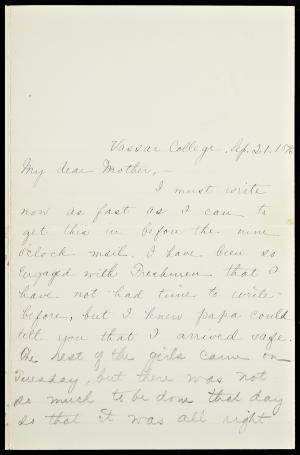 Vassar College, Sep. 21, 18
My dear Mother, —
I must write
now as fast as I can to
get this in before the nine
o'clock mail. I have been so
engaged with Freshmen that I
have not had time to write
before, but I knew papa could
tell you that I arrived safe.
The rest of the girls came on
Tuesday, but there was not
so much to be done that day
so that it was all right